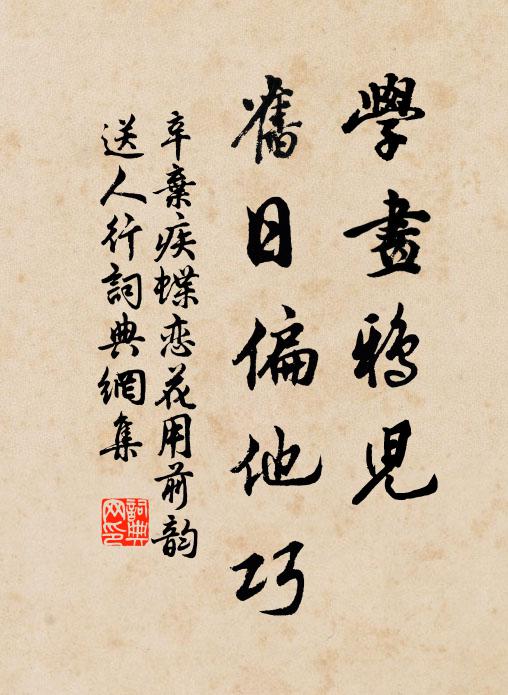 學畫鴉兒
舊日偏他巧
辛棄疾蝶恋花用前韵
送人行詞典網集
詞典
网印